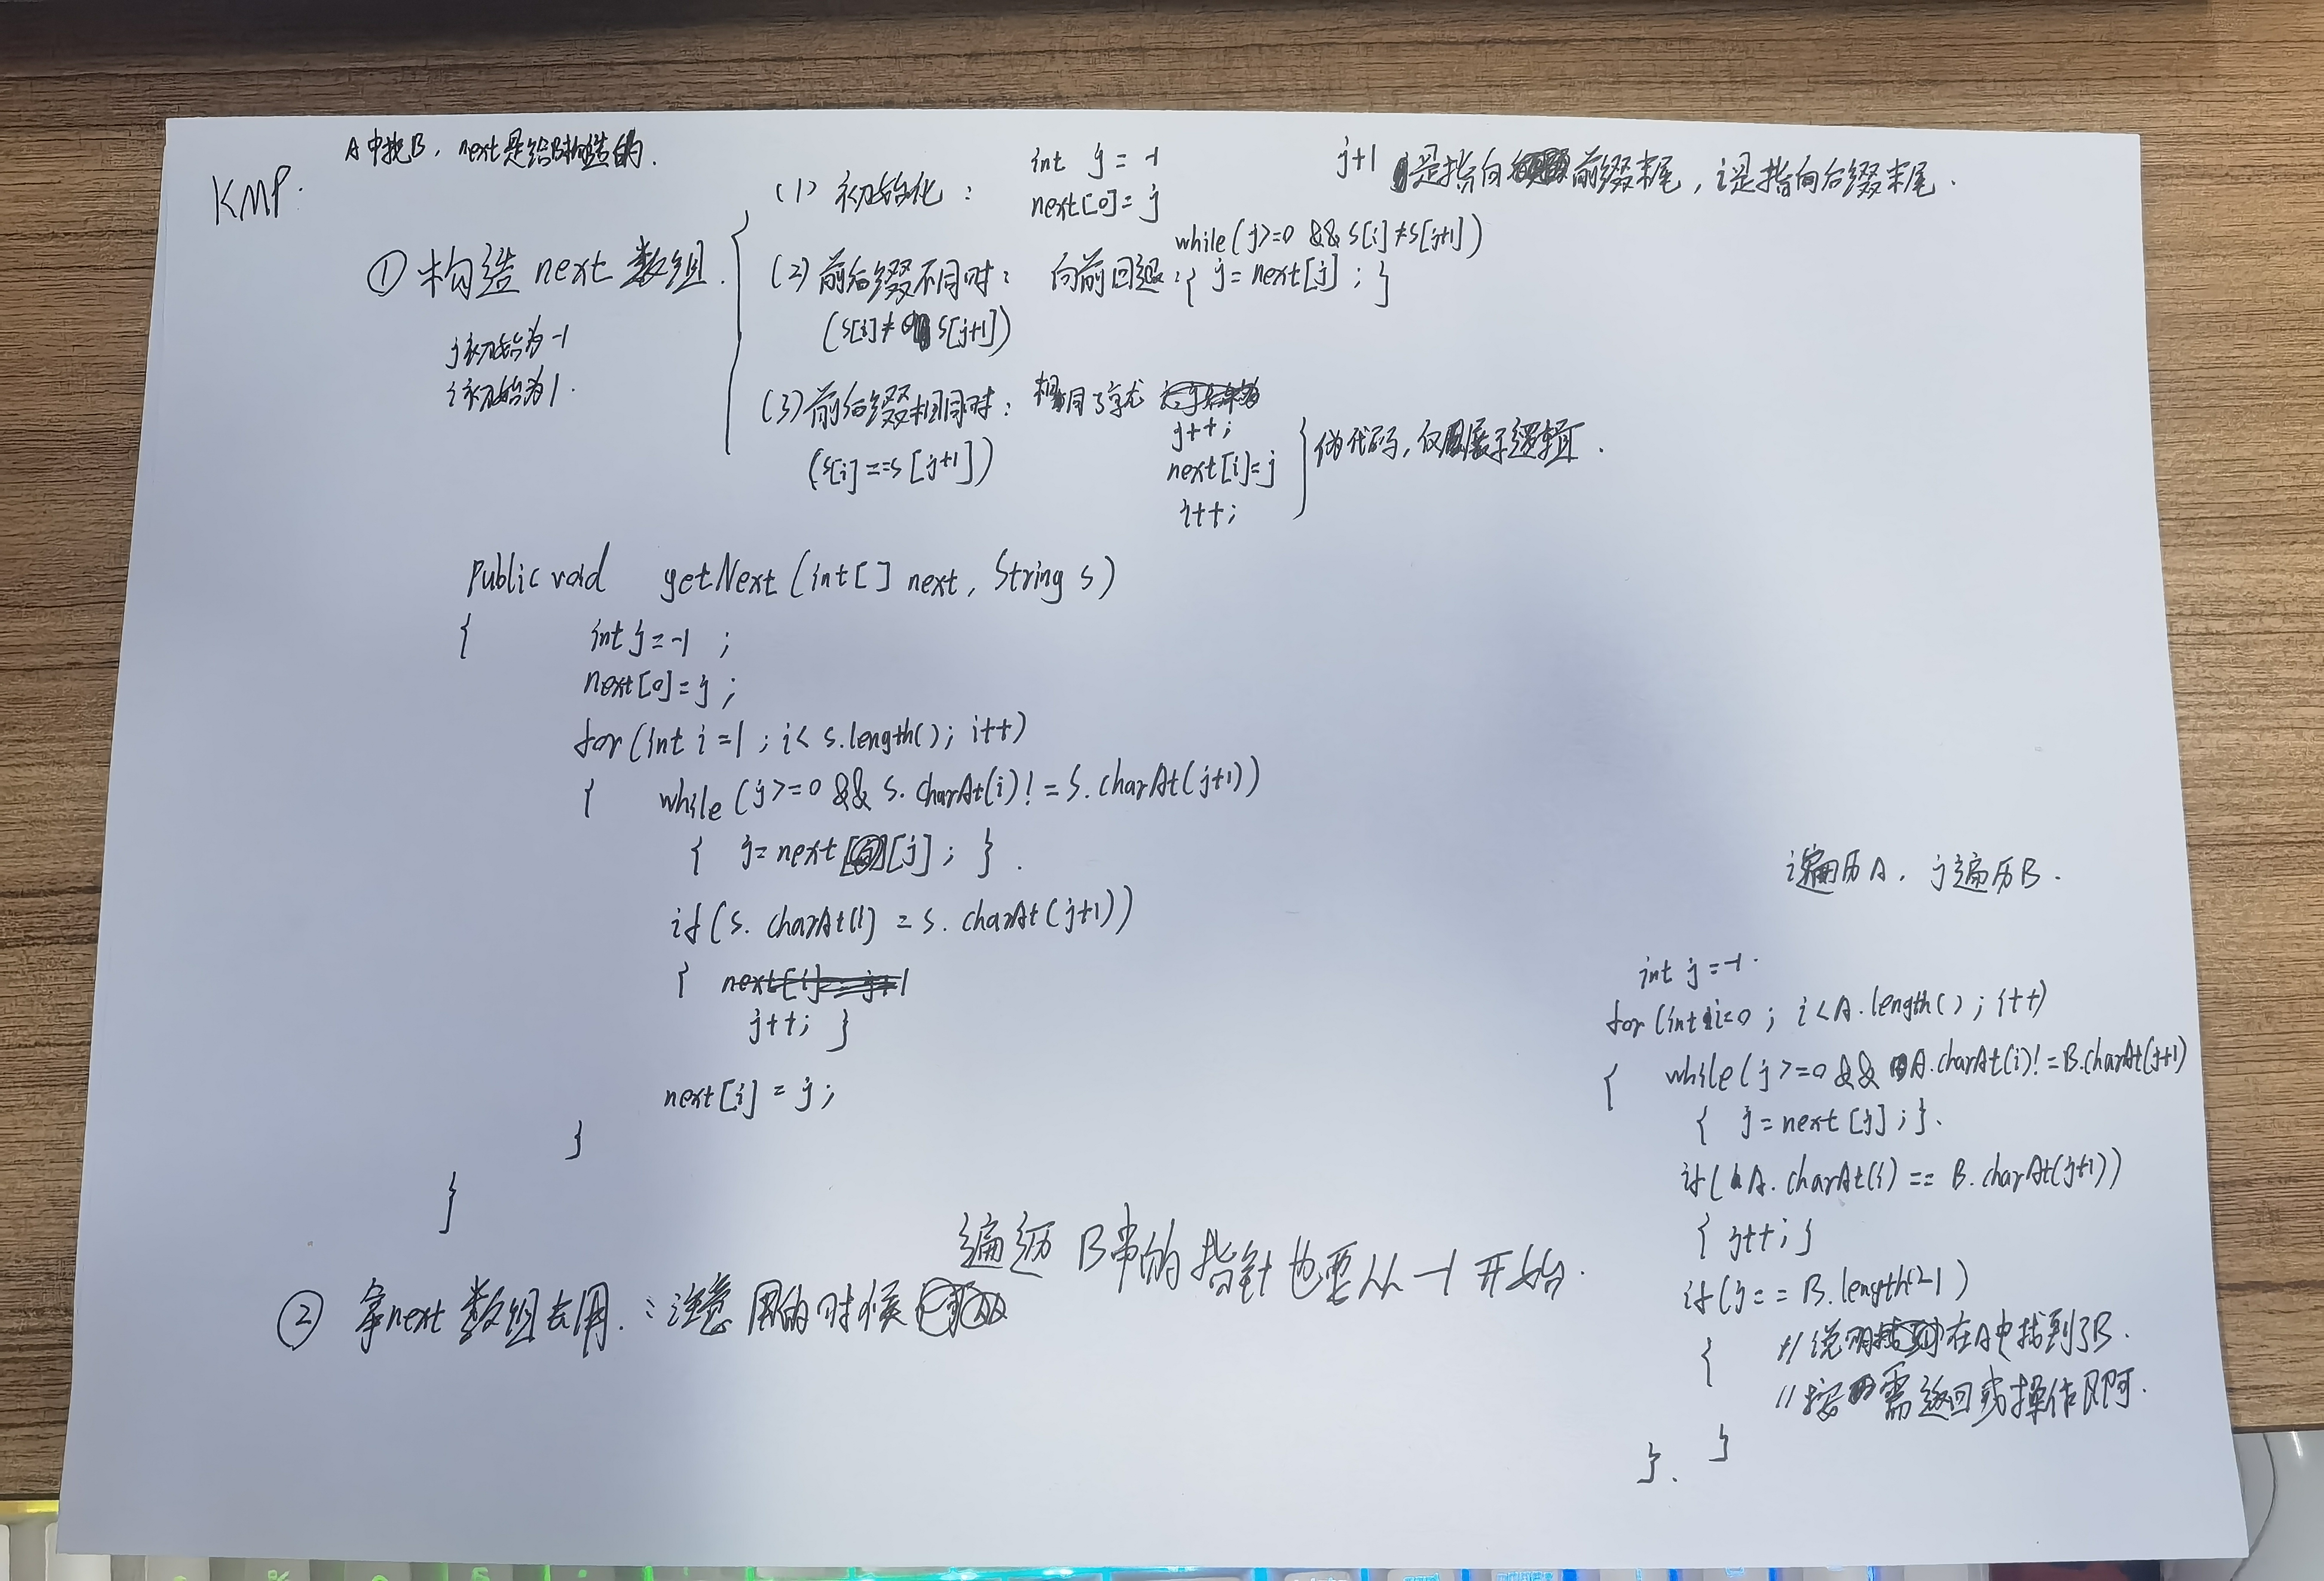 A中找B，next是给B构造的.
KMP:
①构造next数组.
j初始为-1
i初始为1.
(1) 初始化：
int j = -1
next[0]= j
j+1是指向前缀末尾，i是指向后缀末尾.
(2) 前后缀不同时：向前回退：
while(j>=0 && s[i]≠s[j+1])
{ j= next[j] ; }
(s[i]≠ s[j+1])
(3) 前后缀相同时：相同了就
(s[i]==s[j+1])
j++;
next[i]=j
i++;
伪代码，仅展示逻辑.
Public void getNext (int[] next, String s)
{ int j=-1 ;
next[0]=j ;
for(int i=1 ; i< s.length(); i++)
{ while (j>=0 && s.charAt(i)!=s.charAt(j+1))
{ j= next[j] ; }.
if(s.charAt(i) = s.charAt(j+1))
{ next[i]=j+1
j++; }
next[i] = j;
}
}
②拿next数组去用.：注意用的时候
遍历B串的指针也要从-1开始.
i遍历A，j遍历B.
int j=-1.
for(int i=0 ; i<A.length() ; i++)
{ while(j>=0 && A.charAt(i)!=B.charAt(j+1)
{ j=next[j] ; }.
if(A.charAt(i) == B.charAt(j+1))
{ j++; }
if(j== B.length()-1)
{ //说明在A中找到了B.
//按需返回或操作即可.
}
}.